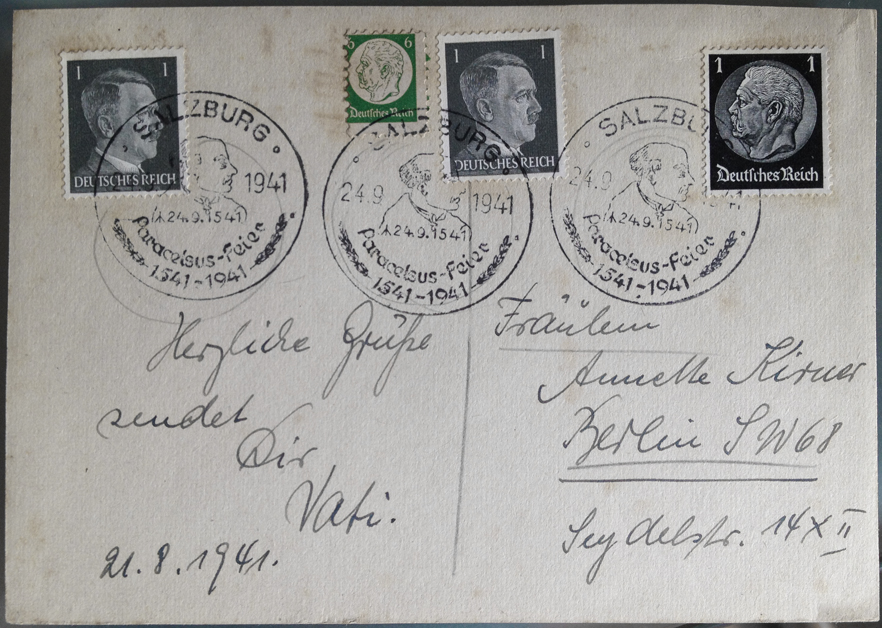 1 1
DEUTSCHES REICH
6 6
Deutsches Reich
1 1
DEUTSCHES REICH
1 1
Deutsches Reich
SALZBURG
1941
24.9.1541
Paracelsus-Feier
1541-1941
SALZBURG
24.9 1941
24.9.1541
Paracelsus-Feier
1541-1941
SALZBU
24.9
24.9.1541
Paracelsus-Feier
1541-1941
Herzliche Grüße
sendet
Dir
Vati.
21.8.1941.
Fräulein
Annette Kirner
Berlin SW68
Seydelstr. 14 II